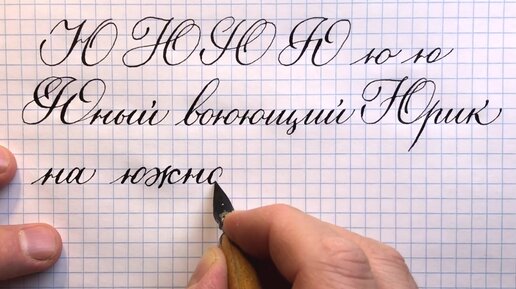 Ю Ю Ю Ю ю ю
Юный воюющий Юрик
на южно